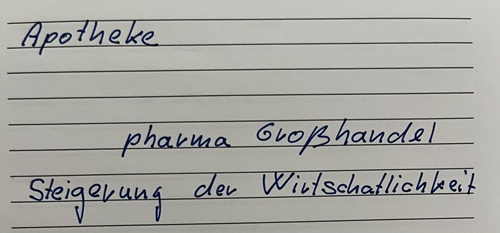 Apotheke
pharma Großhandel
Steigerung der Wirtschatlichkeit